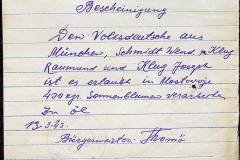 Bescheinigung
Den Volksdeutsche aus
München, Schmidt Wend. u Klug
Raimund und Klug Joseph
ist es erlaubt in Mostowoje
400 kg. Sonnenblumen verarbeiten
In öl
13.3.43.
Bürgermeister Thomä